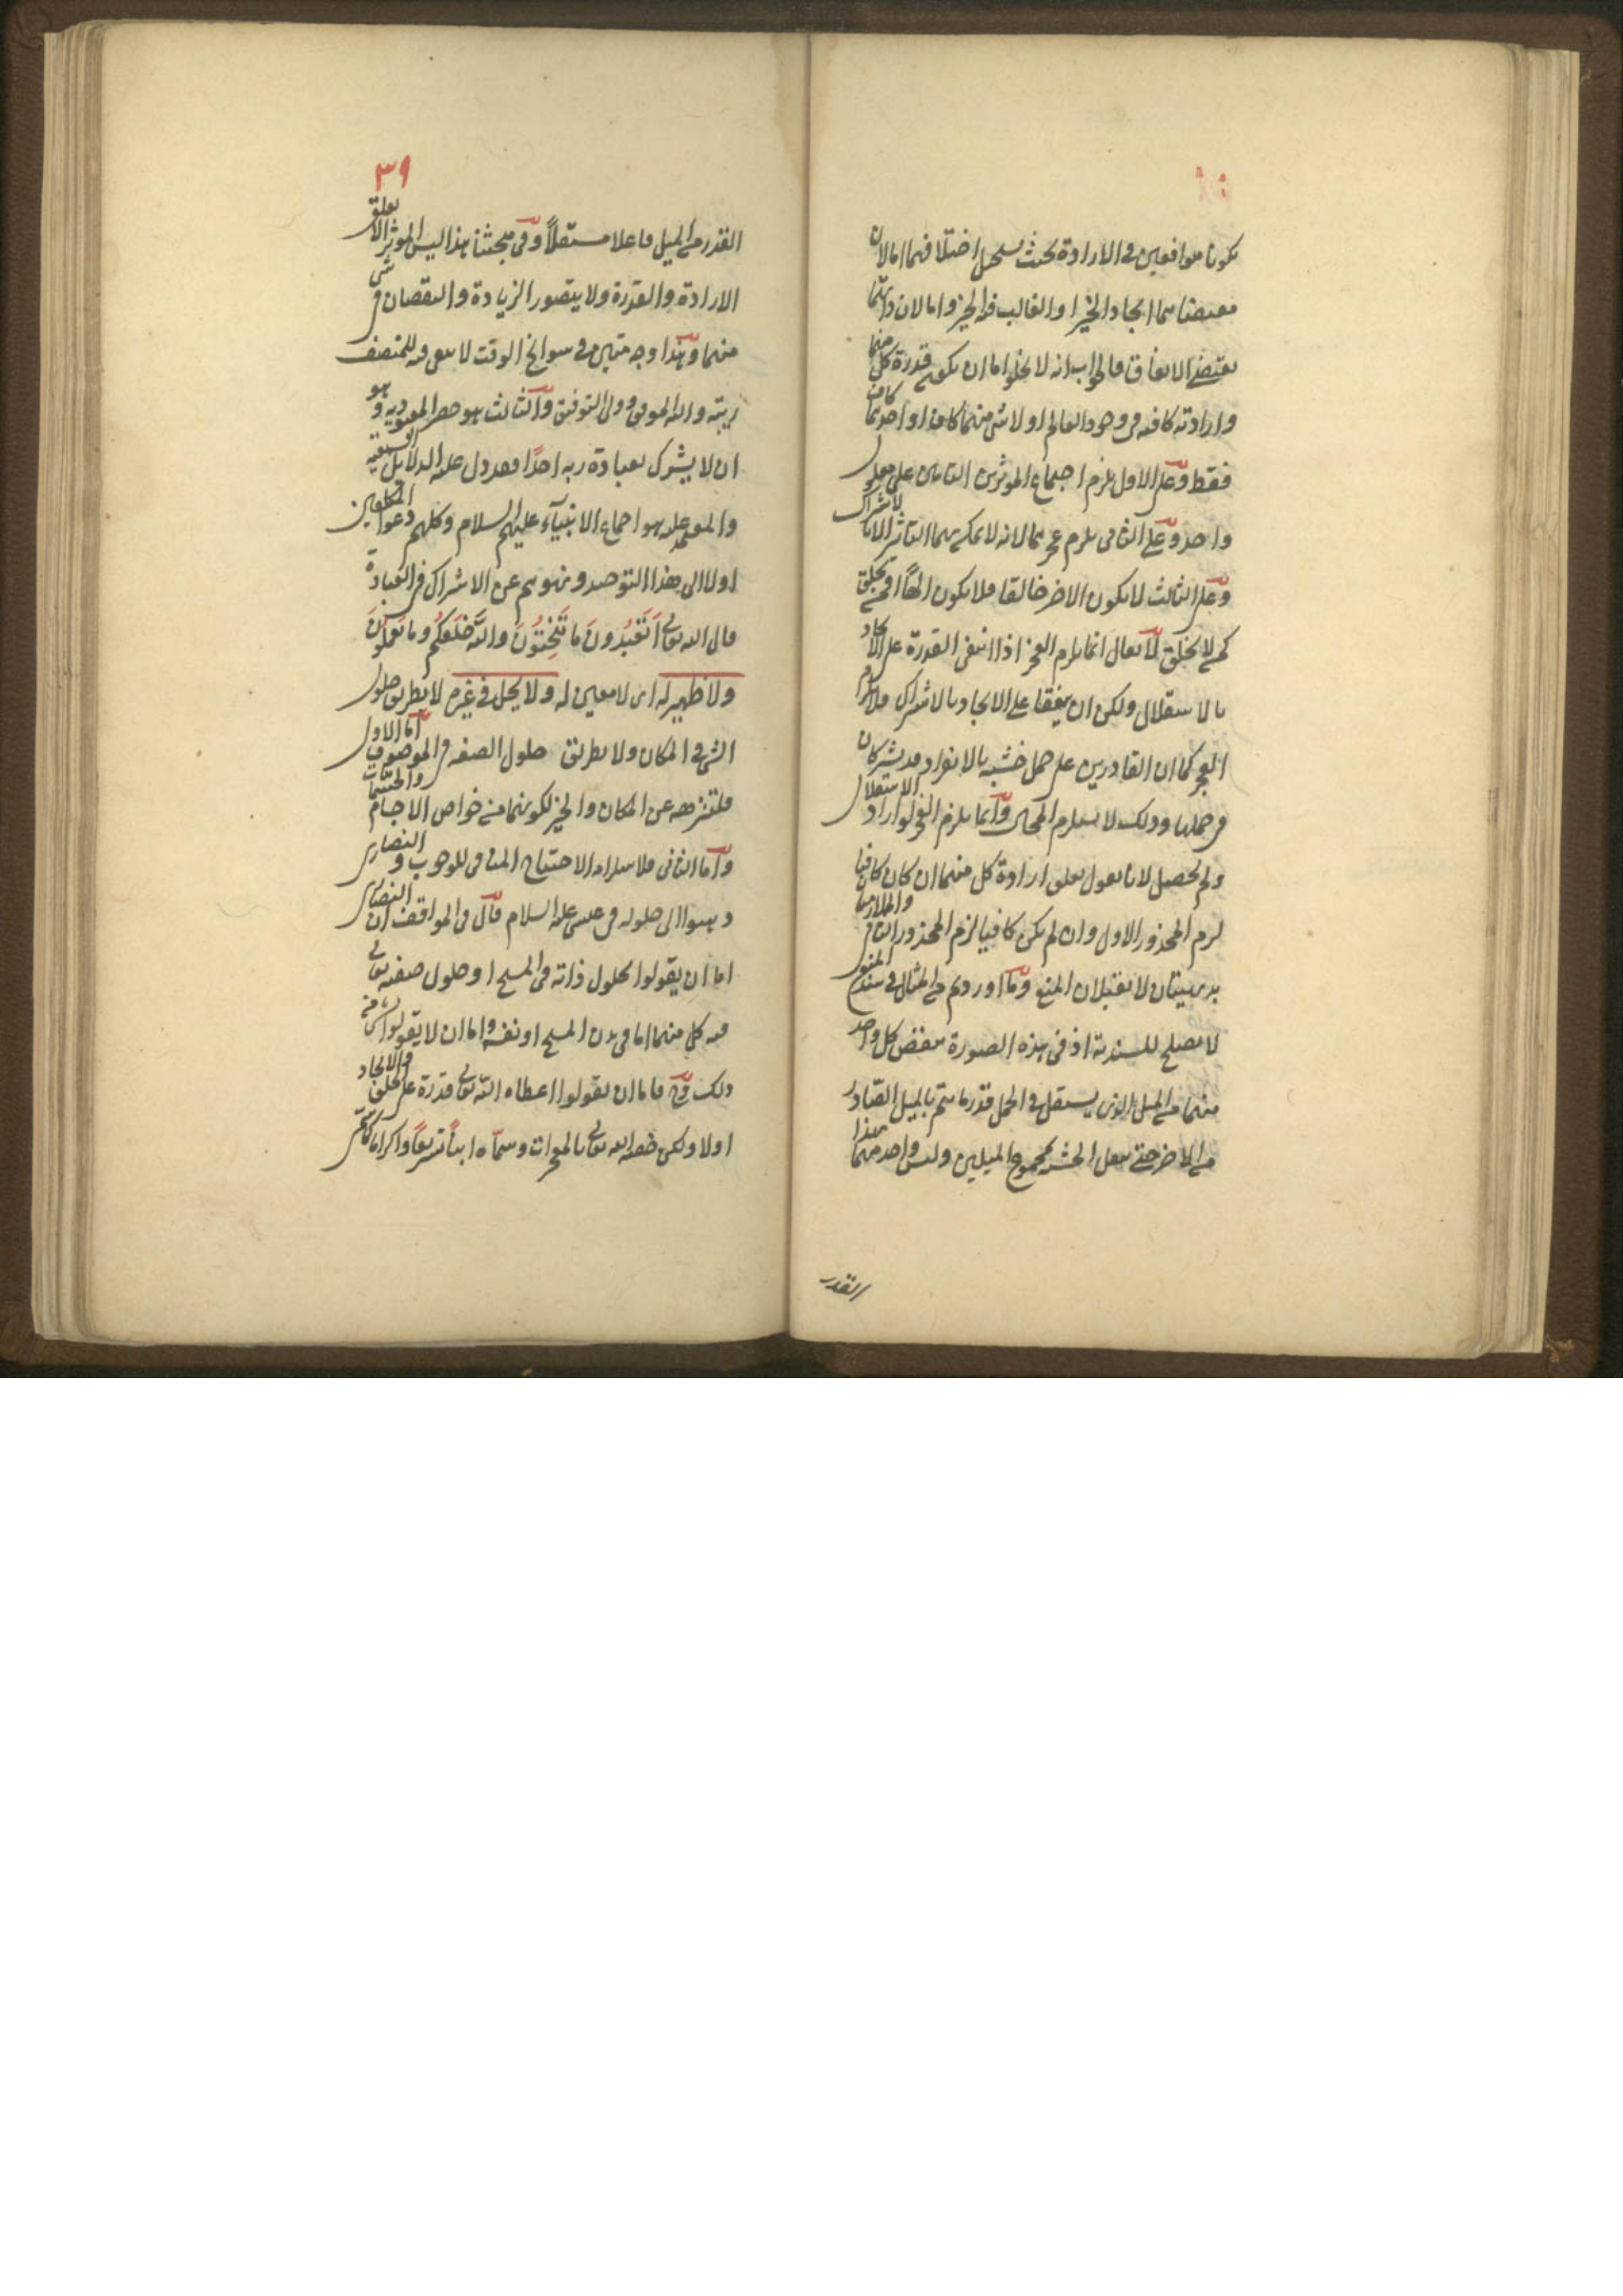 يكونا موافقين في الارادة بحيث يستحيل اختلافهما اما لان
مقتضاهما ايجاد الخير او الغالب فيه الخير واما لان ذاتهما
يقتضي الاتفاق فالجواب انه لا يخلو اما ان يكون قدرة كل منهما
وارادته كافية في وجود العالم او لا شئ منهما كاف او احدهما كاف
فقط وعلى الاول يلزم اجتماع المؤثرين التامين على معلول
واحد وعلى الثاني يلزم عجزهما لانه لا يمكن لهما التأثير الا باشتراك
وعلى الثالث لا يكون الاخر خالقا فلا يكون الها افمن يخلق
كمن لا يخلق لا يقال انما يلزم العجز اذا انتفى القدرة على الايجاد
بالاستقلال ولكن ان يتفقا على الايجاد بالاشتراك فلا يلزم
العجز كما ان القادرين على حمل خشبة بالانفراد قد يشتركان
في حملها وذلك لا يستلزم العجز وانما يلزم العجز لو اراد الاستقلال
ولم يحصل لانا نقول تعلق ارادة كل منهما ان كان كافيا
لزم المحذور الاول وان لم يكن كافيا لزم المحذور الثاني والملازمتان
بديهيتان لا تقبلان المنع وما اوردتم من المثال في سند المنع
لا يصلح للسندية اذ في هذه الصورة ينقص كل واحد
منهما من الميل الذي يستقل في الحمل قدر ما يتم بالميل الصادر
من الاخر حتى ينقل الخشبة بمجموع الميلين وليس واحد منهما بهذا
القدر
٣٩
القدر من الميل فاعلا مستقلا وفي مبحثنا هذا ليس المؤثر الا تعلق
الارادة والقدرة ولا يتصور الزيادة والنقصان في شئ
منهما وهذا وجه متين من سوانح الوقت لا يبقى فيه للمنصف
ريبة والله الموفق وولي التوفيق والثالث هو حصر المعبودية وهو
ان لا يشرك بعبادة ربه احدا فقد دل عليه الدلائل السمعية
وانعقد عليه اجماع الانبياء عليهم السلام وكلهم دعوا المكلفين
اولا الى هذا التوحيد ونهوهم عن الاشراك في العبادة
قال الله تعالى اَتَعْبُدُونَ ما تَنْحِتُونَ والله خلقكم وما تعملون
ولا ظهير له اى لا معين له ولا يحل في غيره لا بطريق حلول
الشئ في المكان ولا بطريق حلول الصفة في الموصوف اما الاول
فلتنزهه عن المكان والحيز لكونهما من خواص الاجسام والجسمانيات
واما الثاني فلاستلزامه الاحتياج المنافي للوجوب والنصارى
ذهبوا الى حلوله في عيسى عليه السلام قال في المواقف ان النصارى
اما ان يقولوا بحلول ذاته في المسيح او حلول صفته تعالى
فيه كل منهما اما في بدن المسيح او نفسه واما ان لا يقولوا بشئ من
ذلك وح فاما ان يقولوا اعطاه الله تعالى قدرة على الخلق والايجاد
اولا ولكن خصه الله تعالى بالمعجزات وسماه ابنا تشريفا واكراما كما سمى